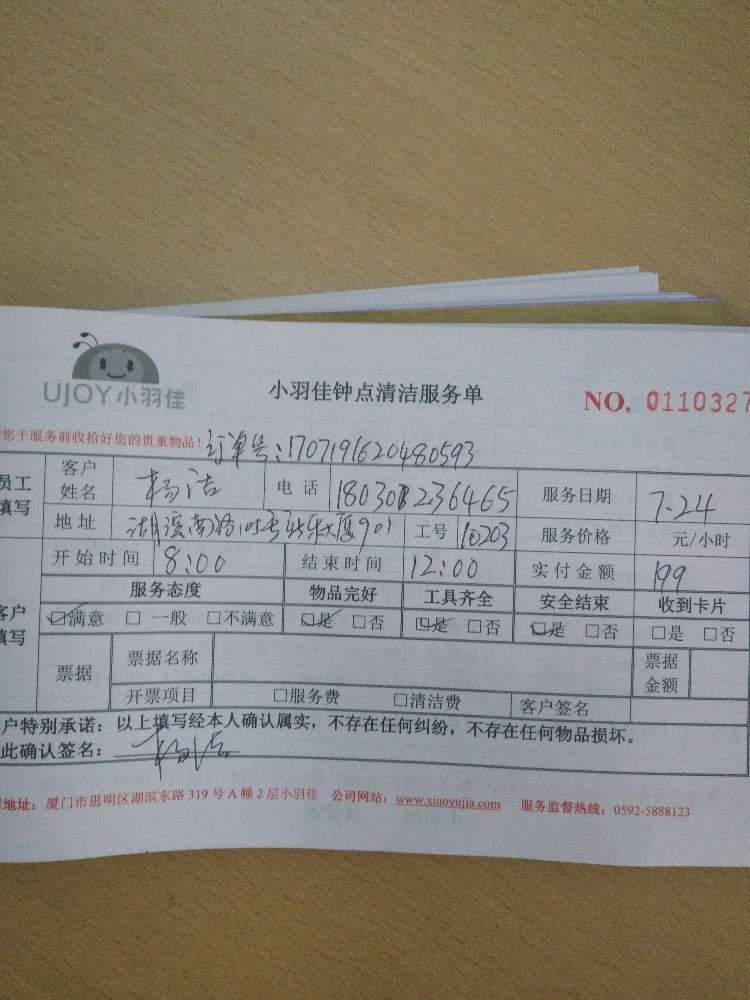 UJOY小羽佳
小羽佳钟点清洁服务单
NO. 0110327
您于服务前收拾好您的贵重物品! 订单号:170719162048 0593
员工填写 客户姓名 杨洁 电话 服务日期 7.24
地址 湖滨南路 大厦901 工号 10203 服务价格 元/小时
开始时间 8:00 结束时间 12:00 实付金额 199
客户填写 服务态度 物品完好 工具齐全 安全结束 收到卡片
☑满意 □一般 □不满意 ☑是 □否 ☑是 □否 ☑是 □否 □是 □否
票据 票据名称 票据金额
开票项目 □服务费 □清洁费 客户签名
户特别承诺:以上填写经本人确认属实,不存在任何纠纷,不存在任何物品损坏。
此确认签名: 杨洁
地址:厦门市思明区湖滨东路 319 号 A 幢 2 层小羽佳 公司网站:www.xiaoyujia.com 服务监督热线:0592-5888123